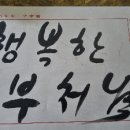 행복한
부처님